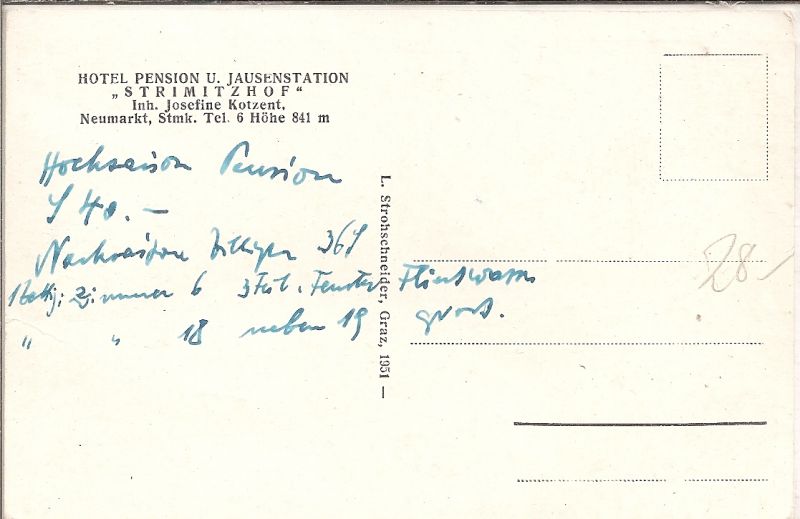 HOTEL PENSION U. JAUSENSTATION
„STRIMITZHOF“
Inh. Josefine Kotzent,
Neumarkt, Stmk. Tel. 6 Höhe 841 m
Hochsaison Pension
S 40.—
Nachsaison billiger 36 S
Zimmer 6 3 teil. Fenster Fließwasser
" " 18 neben 19 gross.
L. Strohschneider, Graz, 1951 —
28-